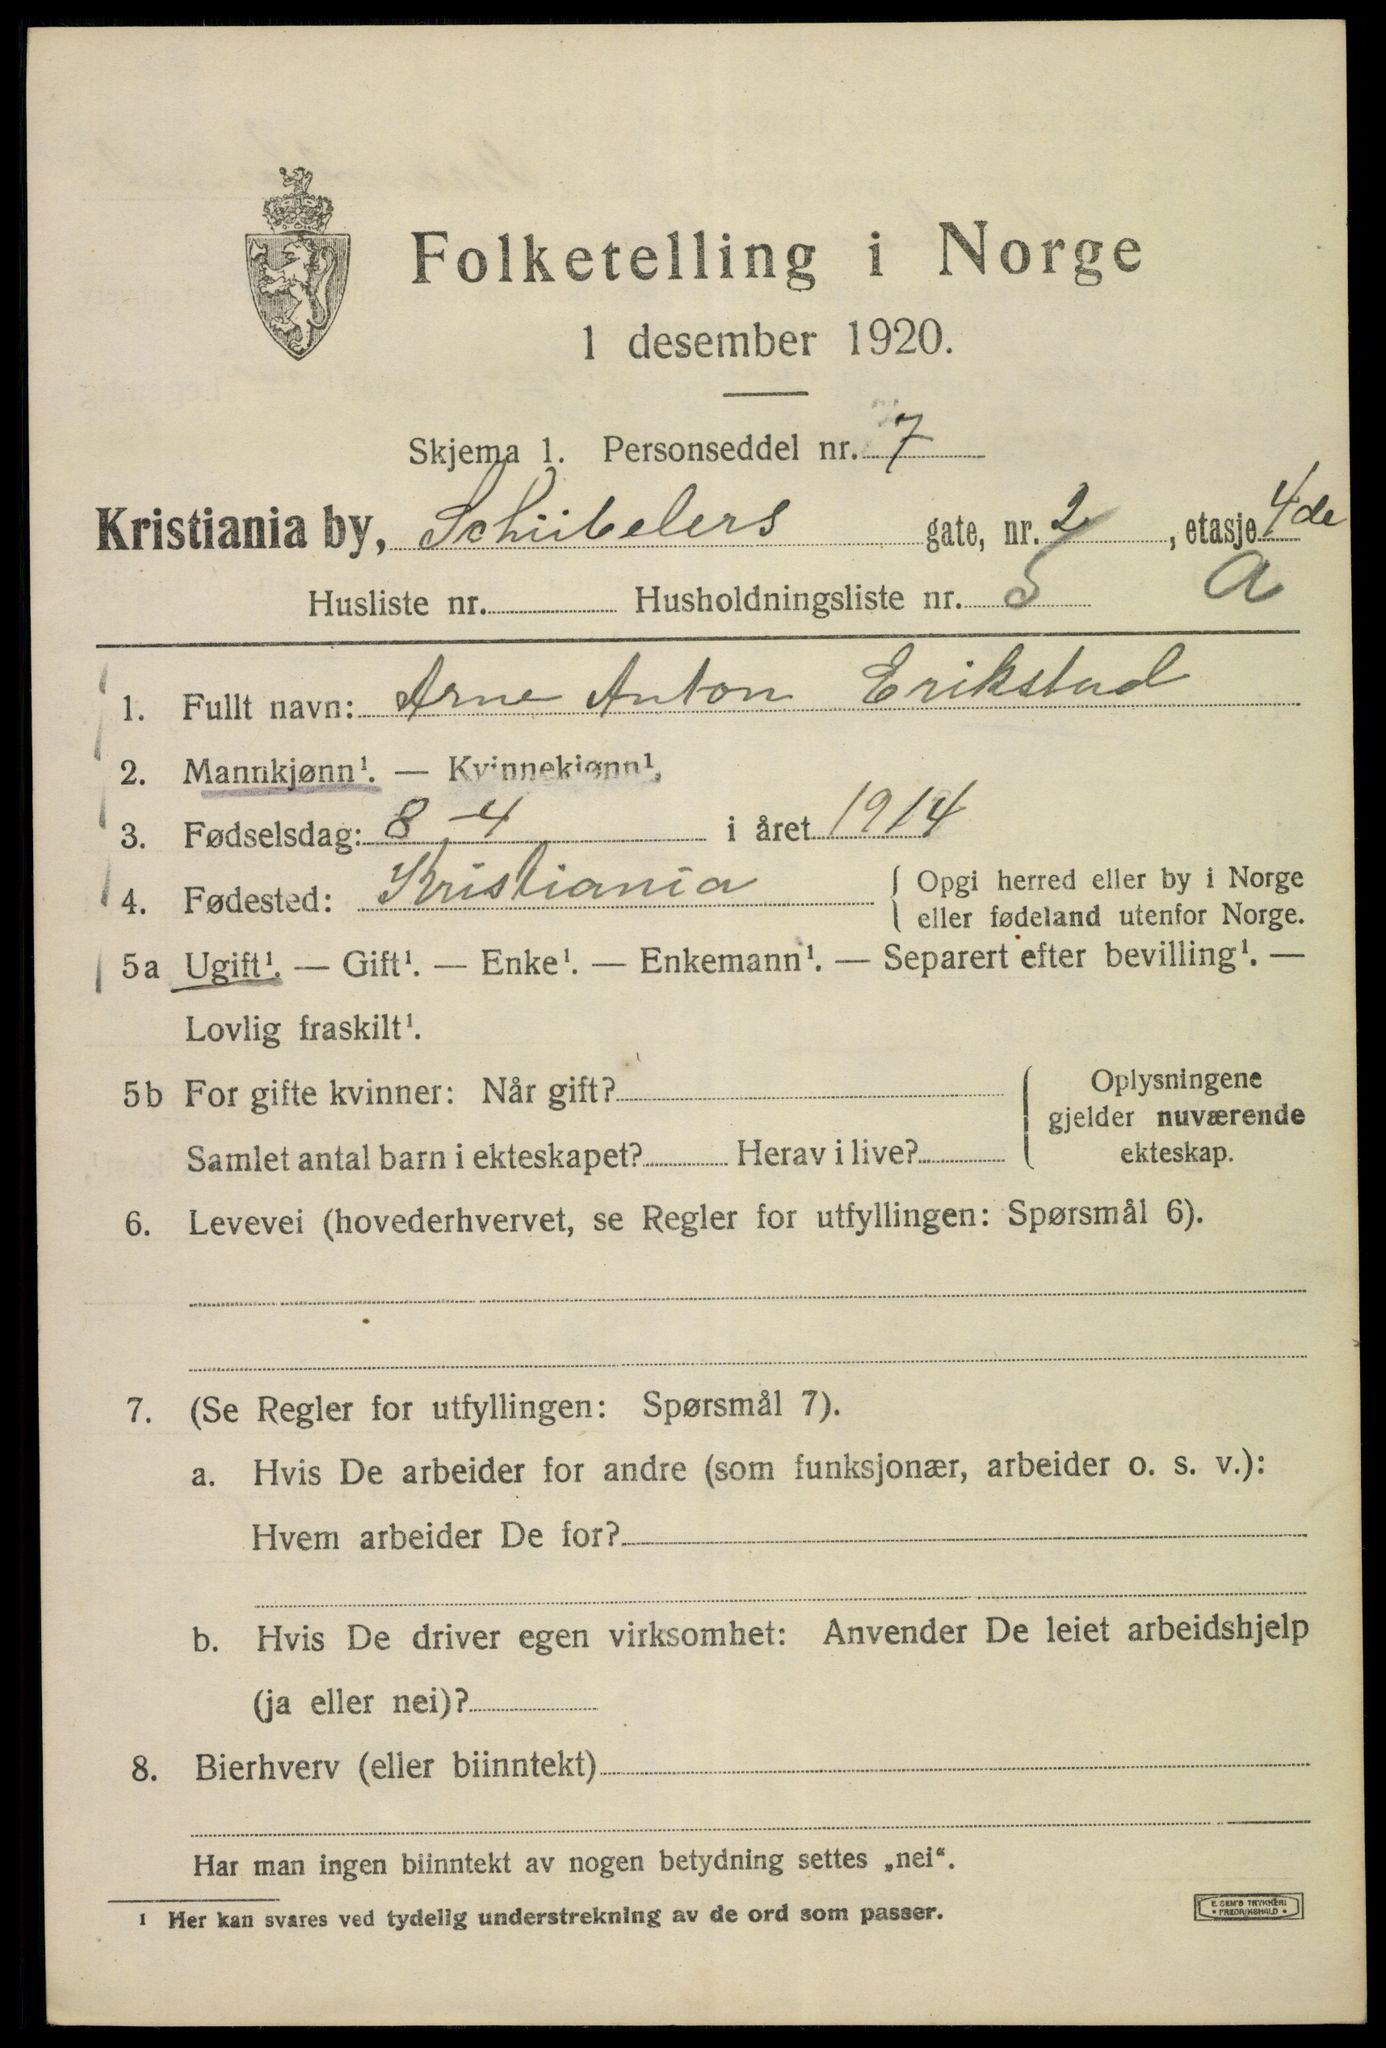 Folketelling i Norge
1 desember 1920.
Skjema 1. Personseddel nr. 7
Kristiania by, Schübelers gate, nr. 2, etasje 4de
Husliste nr. Husholdningsliste nr. 5 a
1. Fullt navn: Arne Anton Erikstad
2. Mannkjønn¹. — Kvinnekjønn¹.
3. Fødselsdag: 8-4 i året 1914
4. Fødested: Kristiania { Opgi herred eller by i Norge
eller fødeland utenfor Norge.
5a Ugift¹. — Gift¹. — Enke¹. — Enkemann¹. — Separert efter bevilling¹. —
Lovlig fraskilt¹.
5b For gifte kvinner: Når gift?
Samlet antal barn i ekteskapet? Herav i live?
Oplysningene
gjelder nuværende
ekteskap.
6. Levevei (hovederhvervet, se Regler for utfyllingen: Spørsmål 6).
7. (Se Regler for utfyllingen: Spørsmål 7).
a. Hvis De arbeider for andre (som funksjonær, arbeider o. s. v.):
Hvem arbeider De for?
b. Hvis De driver egen virksomhet: Anvender De leiet arbeidshjelp
(ja eller nei)?
8. Bierhverv (eller biinntekt)
Har man ingen biinntekt av nogen betydning settes „nei“.
¹ Her kan svares ved tydelig understrekning av de ord som passer.
E. SEM'S TRYKKERI
• FREDRIKSHALD •